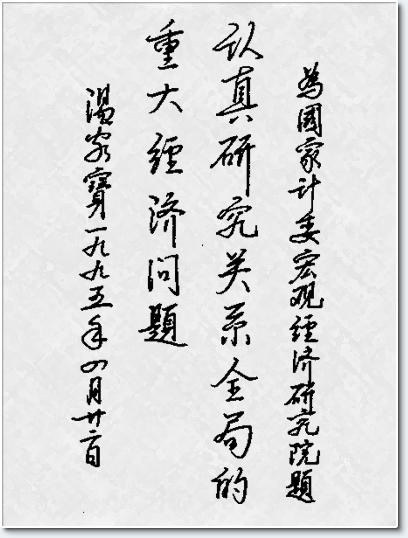 為國家计委宏观經济研究院題
认真研究关系全局的
重大經济问題
温家寶一九九五年四月廿二日